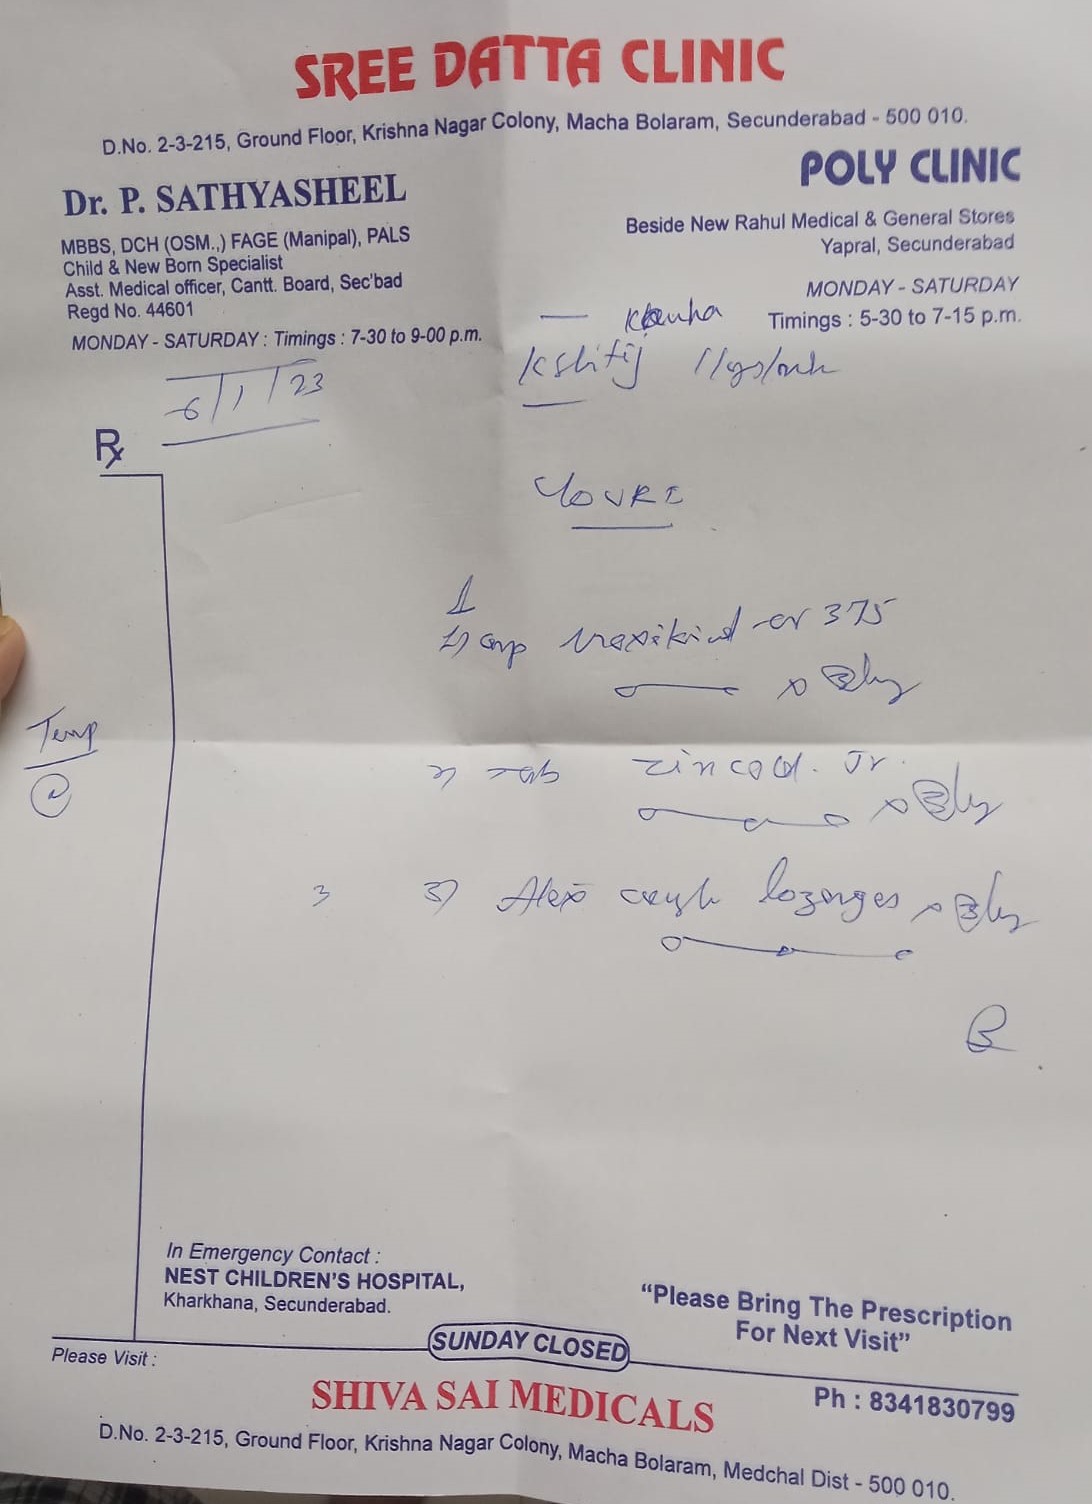 SREE DATTA CLINIC
D.No. 2-3-215, Ground Floor, Krishna Nagar Colony, Macha Bolaram, Secunderabad - 500 010.
Dr. P. SATHYASHEEL
MBBS, DCH (OSM.,) FAGE (Manipal), PALS
Child & New Born Specialist
Asst. Medical officer, Cantt. Board, Sec'bad
Regd No. 44601
MONDAY - SATURDAY : Timings : 7-30 to 9-00 p.m.
POLY CLINIC
Beside New Rahul Medical & General Stores
Yapral, Secunderabad
MONDAY - SATURDAY
Timings : 5-30 to 7-15 p.m.
6/1/23
Kshitij
Rx
1
375
Temp
2) Tab zincold. Jr.
3
3) Alex cough lozenges
In Emergency Contact :
NEST CHILDREN'S HOSPITAL,
Kharkhana, Secunderabad.
"Please Bring The Prescription
For Next Visit"
SUNDAY CLOSED
Please Visit :
SHIVA SAI MEDICALS
Ph : 8341830799
D.No. 2-3-215, Ground Floor, Krishna Nagar Colony, Macha Bolaram, Medchal Dist - 500 010.